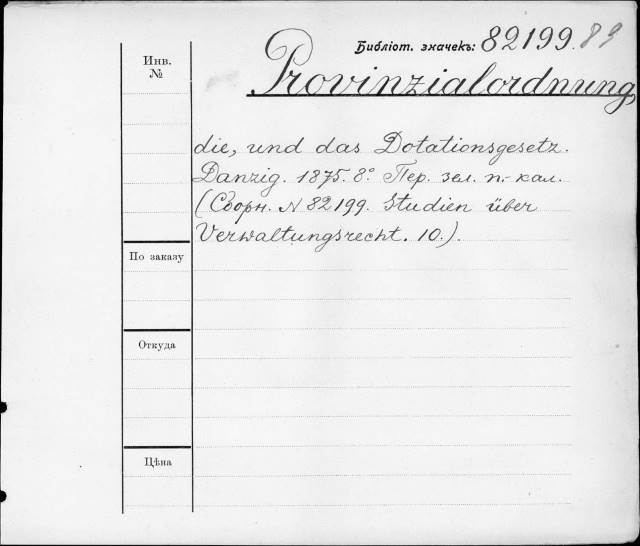 Библіот. значекъ: 82199. 89
Инв. №
Provinzialordnung,
die, und das Dotationsgesetz.
Danzig. 1875. 8° Пер. зел. п.-кал.
(Сборн. N 82199. Studien über
Verwaltungsrecht. 10.).
По заказу
Откуда
Цѣна